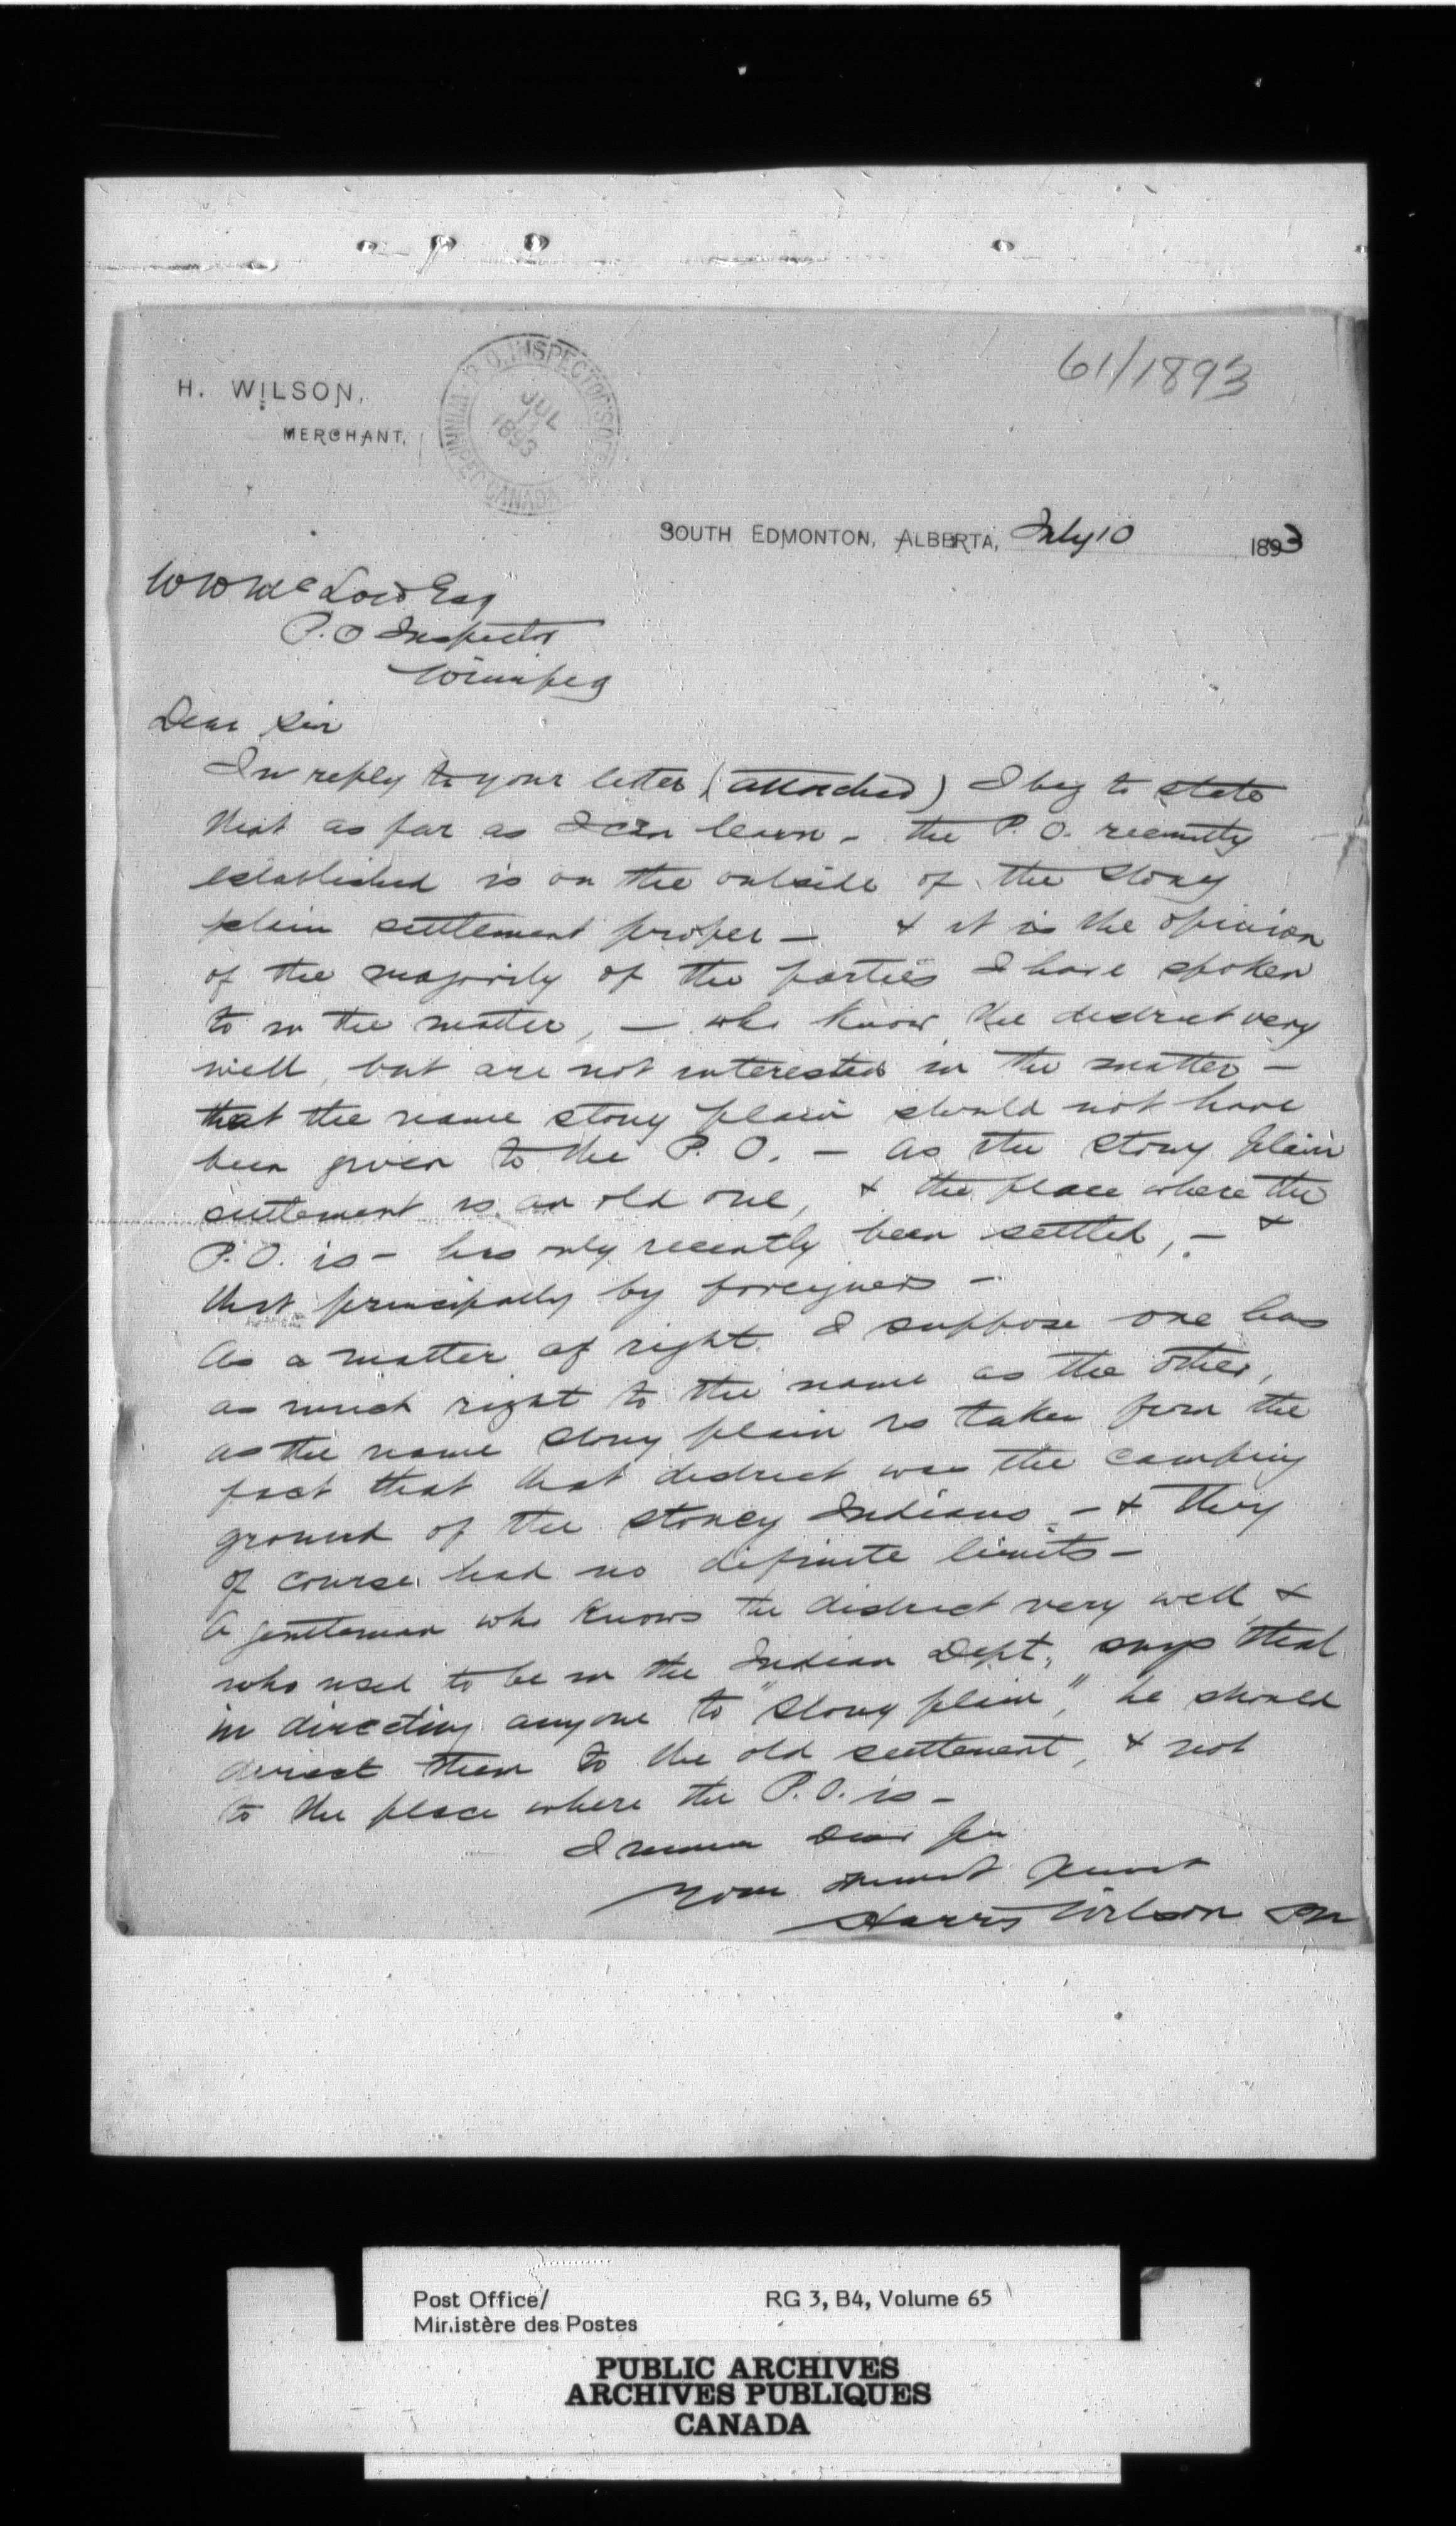 61/1893
H. WILSON,
MERCHANT.
P.O. INSPECTOR'S OFFICE
WINNIPEG CANADA
JUL
1893
SOUTH EDMONTON, ALBERTA, July 10 1893
W W McLeod Esq
P.O Inspector
Winnipeg
Dear Sir
In reply to your letter (attached) I beg to state
that as far as I can learn - the P. O. recently
established is on the outside of the Stony
plain settlement proper - & it is the opinion
of the majority of the parties I have spoken
to in the matter, - who know the district very
well, but are not interested in the matter -
that the name stony plain should not have
been given to the P. O. - as the stony plain
settlement is an old one, & the place where the
P.O. is - has only recently been settled, - &
that principally by foreigners -
As a matter of right I suppose one has
as much right to the name as the other,
as the name stony plain is taken from the
fact that that district was the camping
ground of the stoney Indians - & they
of course had no definite limits -
A gentleman who knows the district very well &
who used to be in the Indian Dept. says that
in directing anyone to "Stony plain", he should
direct them to the old settlement, & not
to the place where the P.O. is -
I remain Dear Sir
Your obedient Servant
Harry Wilson PM
Post Office/
Ministère des Postes
RG 3, B4, Volume 65
PUBLIC ARCHIVES
ARCHIVES PUBLIQUES
CANADA